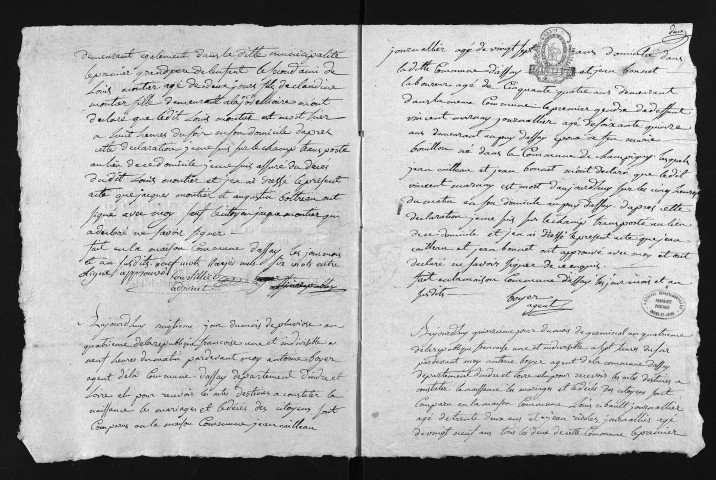 demeurant egalement dans laditte municipalité
le premier grand pere de l'enfant le second ami de
Louis montier agé de deux jours fils de claudine
montier fille demeurant a lajodelliere mont
déclaré que ledit Louis montier est mort hier
a huit heures du soir en son domicile dapres
cette declaration je me suis sur le champ transporté
au lieu de ce domicile je me suis assuré du déces
dudit Louis montier et jen ai dréssé le présent
acte que jacques montier et augustin boltreau ont
signé avec moy sauf le citoyen jacques montier qui
a declaré ne savoir signer
fait en la maison Commune dassay les jour mois
et an susdits neuf mots rayés nuls six mots entre
ligne approuvés
adjoint
Aujourdhuy mitieme jour du mois de pluviose an
quatrieme de la republique francoise une et indivisible a
neuf heures du matin pardevant moy antoine boyer
agent de la Commune dassay departement d'indre et
Loire et pour recevoir les actes destinés a constater la
naissance les mariages et les décés des citoyens sont
Comparus en la maison Commune jean cailleau
journallier agé de vingt sept ans domicilié dans
la ditte Commune d'assay et jean bonnet
laboureur agé de Cinquante quatre ans demeurant
dans la meme Commune le premier gendre de deffunt
vincent marnay journallier agé de soixante quinze
ans demeurant au puy dassay epoux de feu marie
bouillon né dans la Commune de champigny lesquels
jean cailleau et jean bonnet mont declaré que ledit
vincent marnay est mort d'aujourdhuy sur les cinq heures
du matin en son domicile au puy dassay dapres cette
déclaration je me suis sur le champ transporté au lieu
de ce domicile et jen ai dréssé le présent acte que jean
cailleau et jean bonnet ont approuvé avec moy et ont
declaré ne savoir signer de ce enquis
fait en la maison Commune dassay les jour mois et an
susdits
boyer
agent
Aujourdhuy quinzieme jour du mois de germinal an quatrieme
de la république francoise une et indivisible a sept heures du soir
pardevant moy antoine boyer agent de la commune dassay
departement d'indre et Loire élu pour recevoir les actes destinés a
constater la naissance les mariages et les décés des citoyens sont
Comparu en la maison Commune Louis ribault journallier
agé de trente deux ans et jean rullier journallier agé
de vingt neuf ans tous les deux de cette Commune le premier